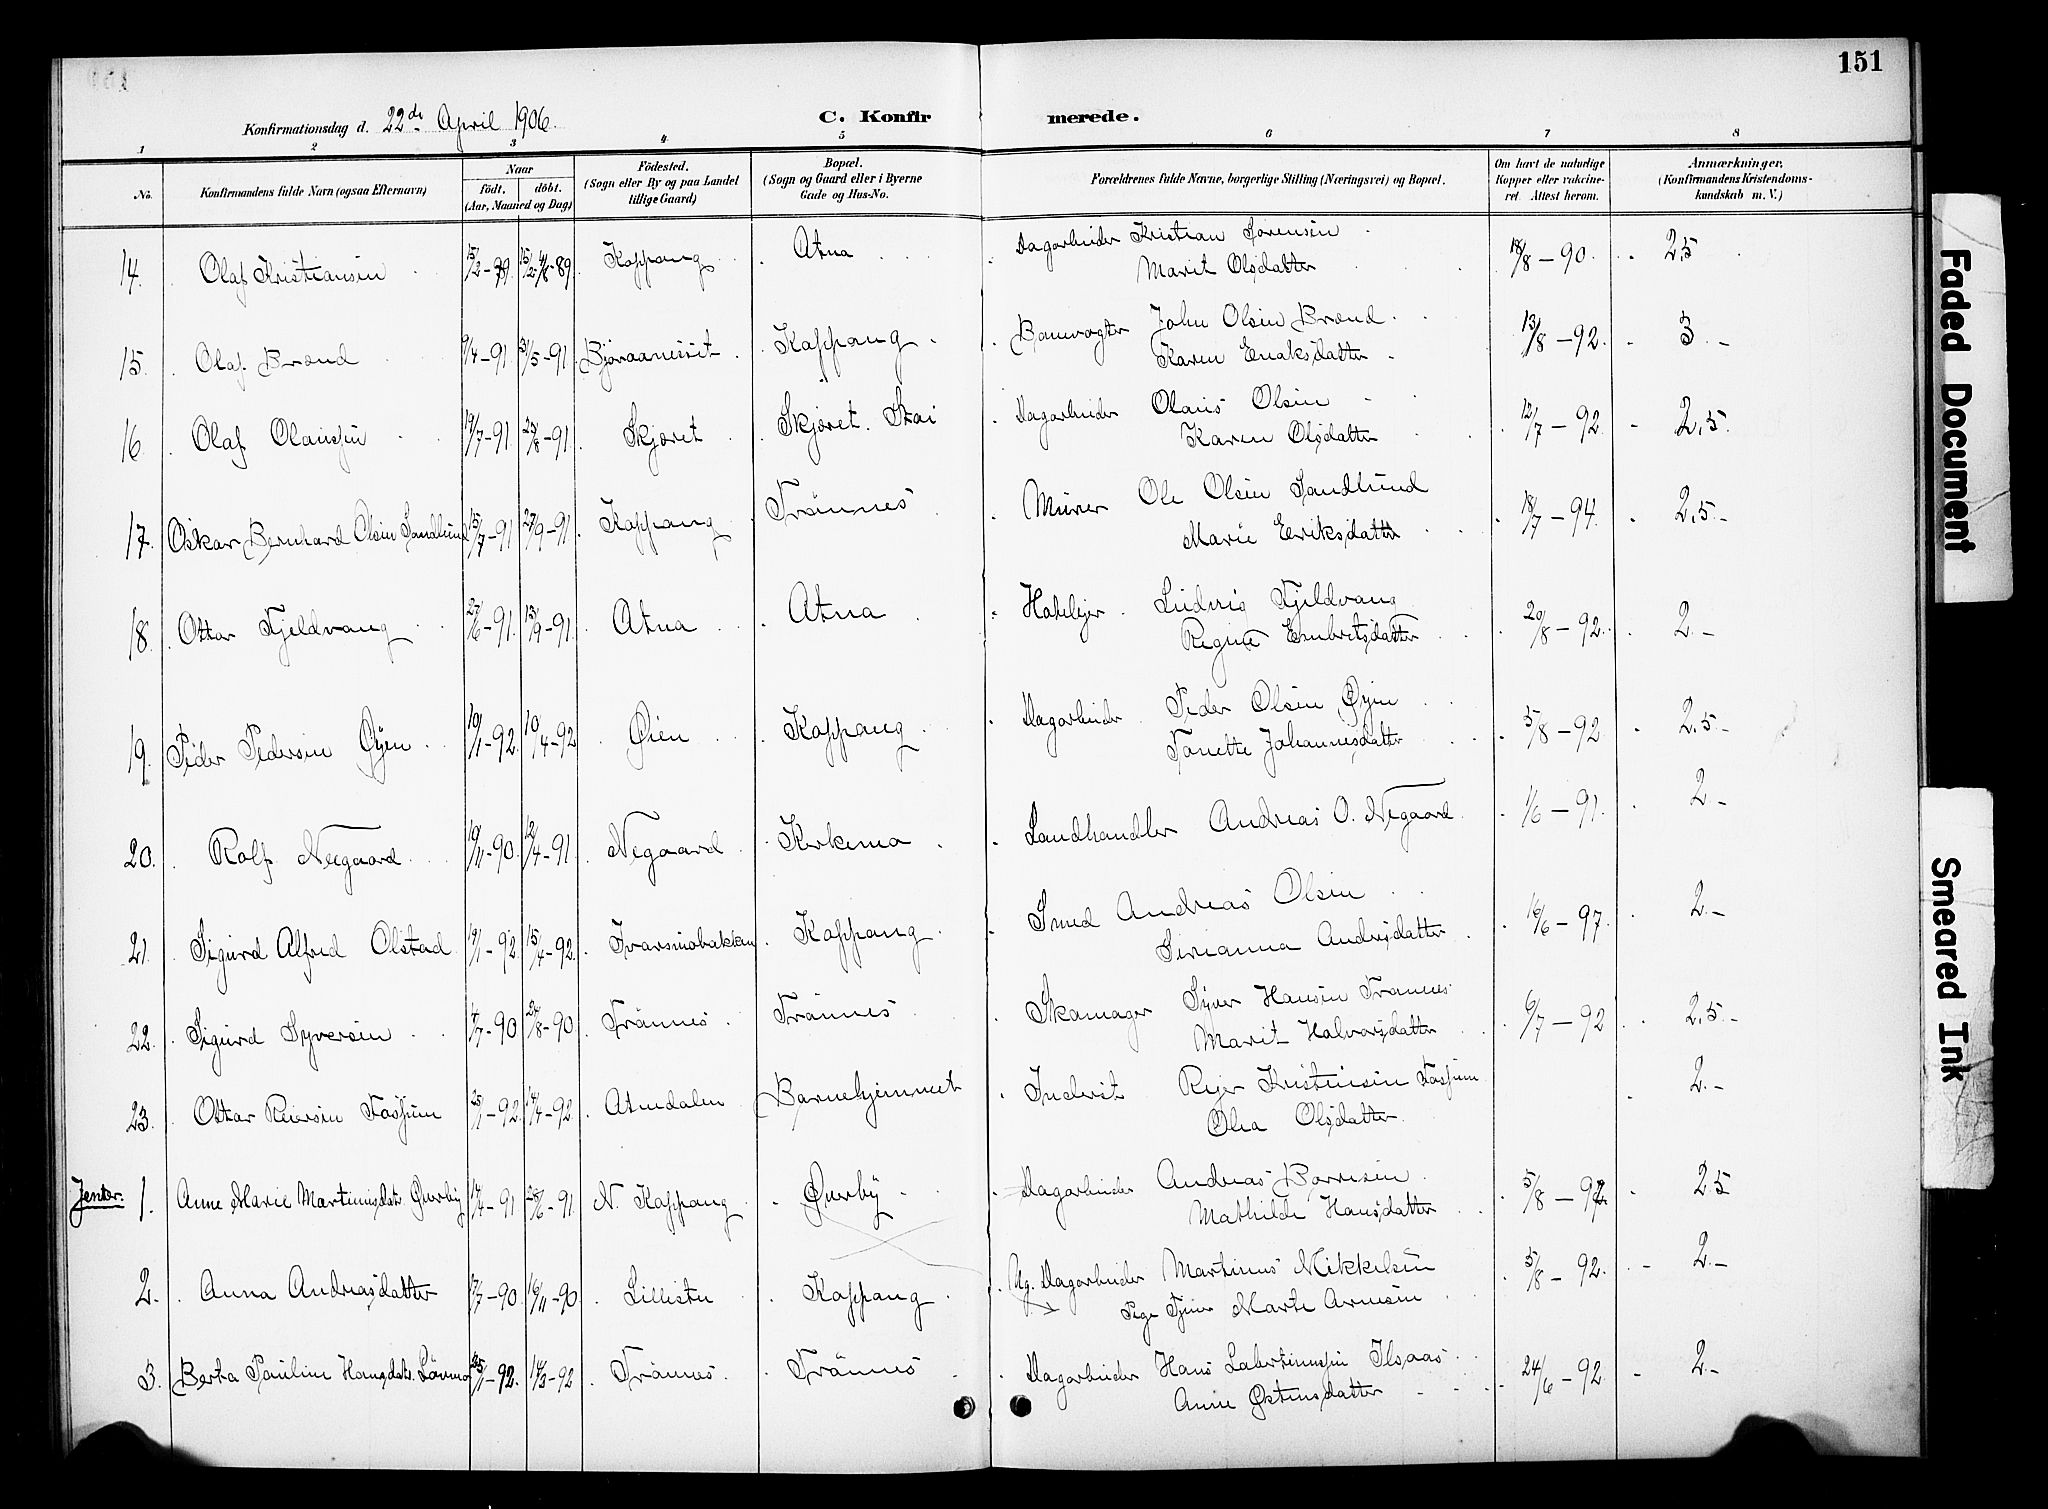 151
Konfirmationsdag d. 22de April 1906.
C. Konfirmerede.
1 2 3 4 5 6 7 8
No.
Konfirmandens fulde Navn (ogsaa Efternavn)
Naar
födt. döbt.
(Aar, Maaned og Dag)
Födested.
(Sogn eller By og paa Landet
tillige Gaard)
Bopæl.
(Sogn og Gaard eller i Byerne
Gade og Hus-No.
Forældrenes fulde Navne, borgerlige Stilling (Næringsvei) og Bopæl.
Om havt de naturlige
Kopper eller vakcine-
ret. Attest herom.
Anmærkninger,
(Konfirmandens Kristendoms-
kundskab m. V.)
14. Olaf Kristiansen Koppang Atna Dagarbeider Kristian Sørensen 18/8 - 90. 2,5
Marit Olsdatter
15. Olaf Brænd 9/4-91 31/5-91 Bjøraanesset Koppang Banevogter John Olsen Brænd 13/8 - 92. 3.-
Karen Enaksdatter
16. Olaf Olaussen 19/7-91 23/8-91 Skjæret Skjæret. Stai Dagarbeider Olaus Olsen 12/7 - 92. 2,5.
Karen Olsdatter
17. Oskar Bernhard Olsen Sandlund 15/7-91 27/9-91 Koppang Trønnes Murer Ole Olsen Sandlund 18/7 - 94. 2,5.-
Marie Eriksdatter
18. Ottar Fjeldvang 27/6-91. 13/9-91. Atna Atna Hotelejer Ludvig Fjeldvang 20/8 - 92. 2.-
Regine Embretsdatter
19. Peder Pedersen Øyen 10/1-92. 10/4-92 Øien Koppang Dagarbeider Peder Olsen Øyen 5/8 - 92 2,5.-
Tonette Johannesdatter
20. Rolf Neegaard 19/11-90. 12/4-91. Negaard Kirkemo Landhandler Andreas O. Negaard 1/6 - 91. 2.-
21. Sigurd Alfred Olstad 19/1-92. 15/4-92. Ivarsmobakken Koppang Smed Andreas Olsen 16/6 - 97. 2.-
Serianna Andersdatter
22. Sigurd Syversen 4/7-90 24/8-90 Trønnes Trønnes Skomager Syver Hansen Trønnes 6/7 - 92 2,5.-
Marit Halvorsdatter
23. Ottar Reiersen Fossum 25/1-92. 14/4-92. Atnedalen Barnehjemmet Inderst Rejer Kristensen Fossum 2.-
Olea Olsdatter
Jenter. 1. Anne Marie Martinusdatr. Øverby 14/4-91 28/6-91. N. Koppang Øverby Dagarbeider Andreas Borresen 5/8 - 92 2 5
Mathilde Hansdatter
2. Anna Andreasdatter 17/7-90. 16/11-90. Lillestu Koppang Ug. Dagarbeider Martinus Mikkelsen 5/8 - 92. 2.-
Pige Marte Arnesen
3. Berta Pauline Hansdatr. 25/1-92. 14/3-92 Trønnes Trønnes Dagarbeider Hans Ilsaas 24/6 - 92. 2.-
Anne Østensdatter
Faded Document
Smeared Ink